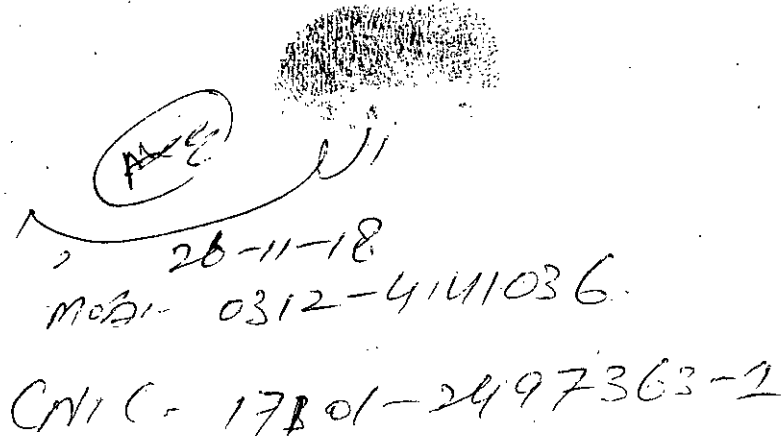 العبد
26-11-18
Mob:- 0312-4141036.
CNIC- 17301-2497363-1